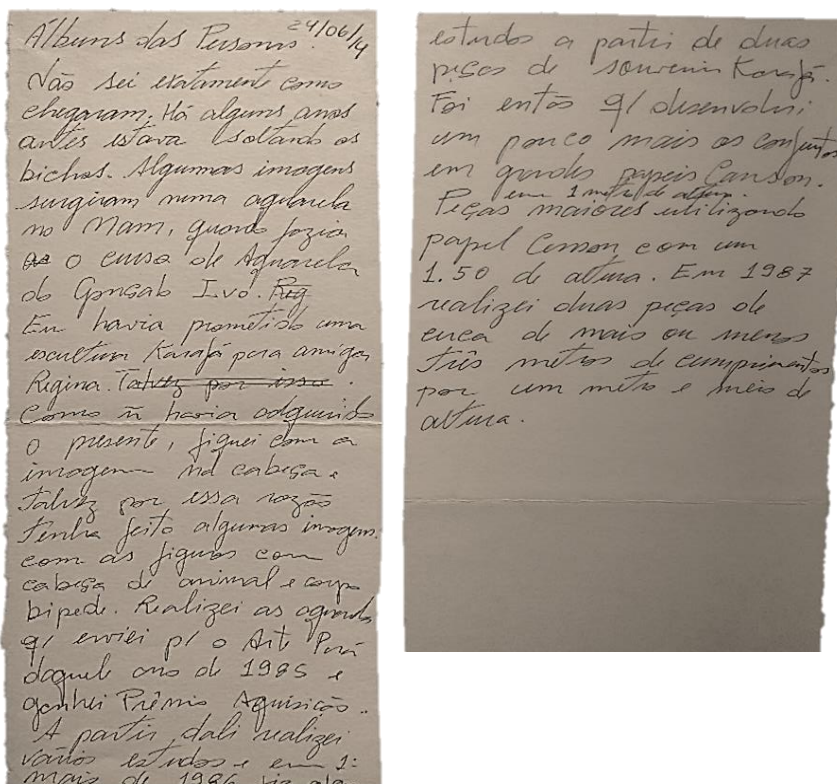 Álbuns das Personas. 24/06/14
Não sei exatamente como
chegaram. Há alguns anos
antes estava soltando os
bichos. Algumas imagens
surgiram numa aquarela
no Mam, quando fazia
o curso de Aquarela
do Gonçalo Ivo. Reg
Eu havia prometido uma
escultura Karajá para amiga
Regina. Talvez por isso.
Como ñ havia adquirido
o presente, fiquei com a
imagem na cabeça e
talvez por essa razão
tenha feito algumas imagens
com as figuras com
cabeça de animal e corpo
bipede. Realizei as aquarelas
q/ enviei p/ o Art Pará
daquele ano de 1985 e
ganhei Prêmio Aquisição.
A partir dali realizei
vários estudos e em 1º
maio de 1986 fiz
estudos a partir de duas
peças de souvenir Karajá.
Foi então q/ desenvolvi
um pouco mais os conjuntos
em grandes papeis Canson.
em 1 metro de altura.
Peças maiores utilizando
papel Canson com um
1.50 de altura. Em 1987
realizei duas peças de
cerca de mais ou menos
três metros de cumprimentos
por um metro e meio de
altura.